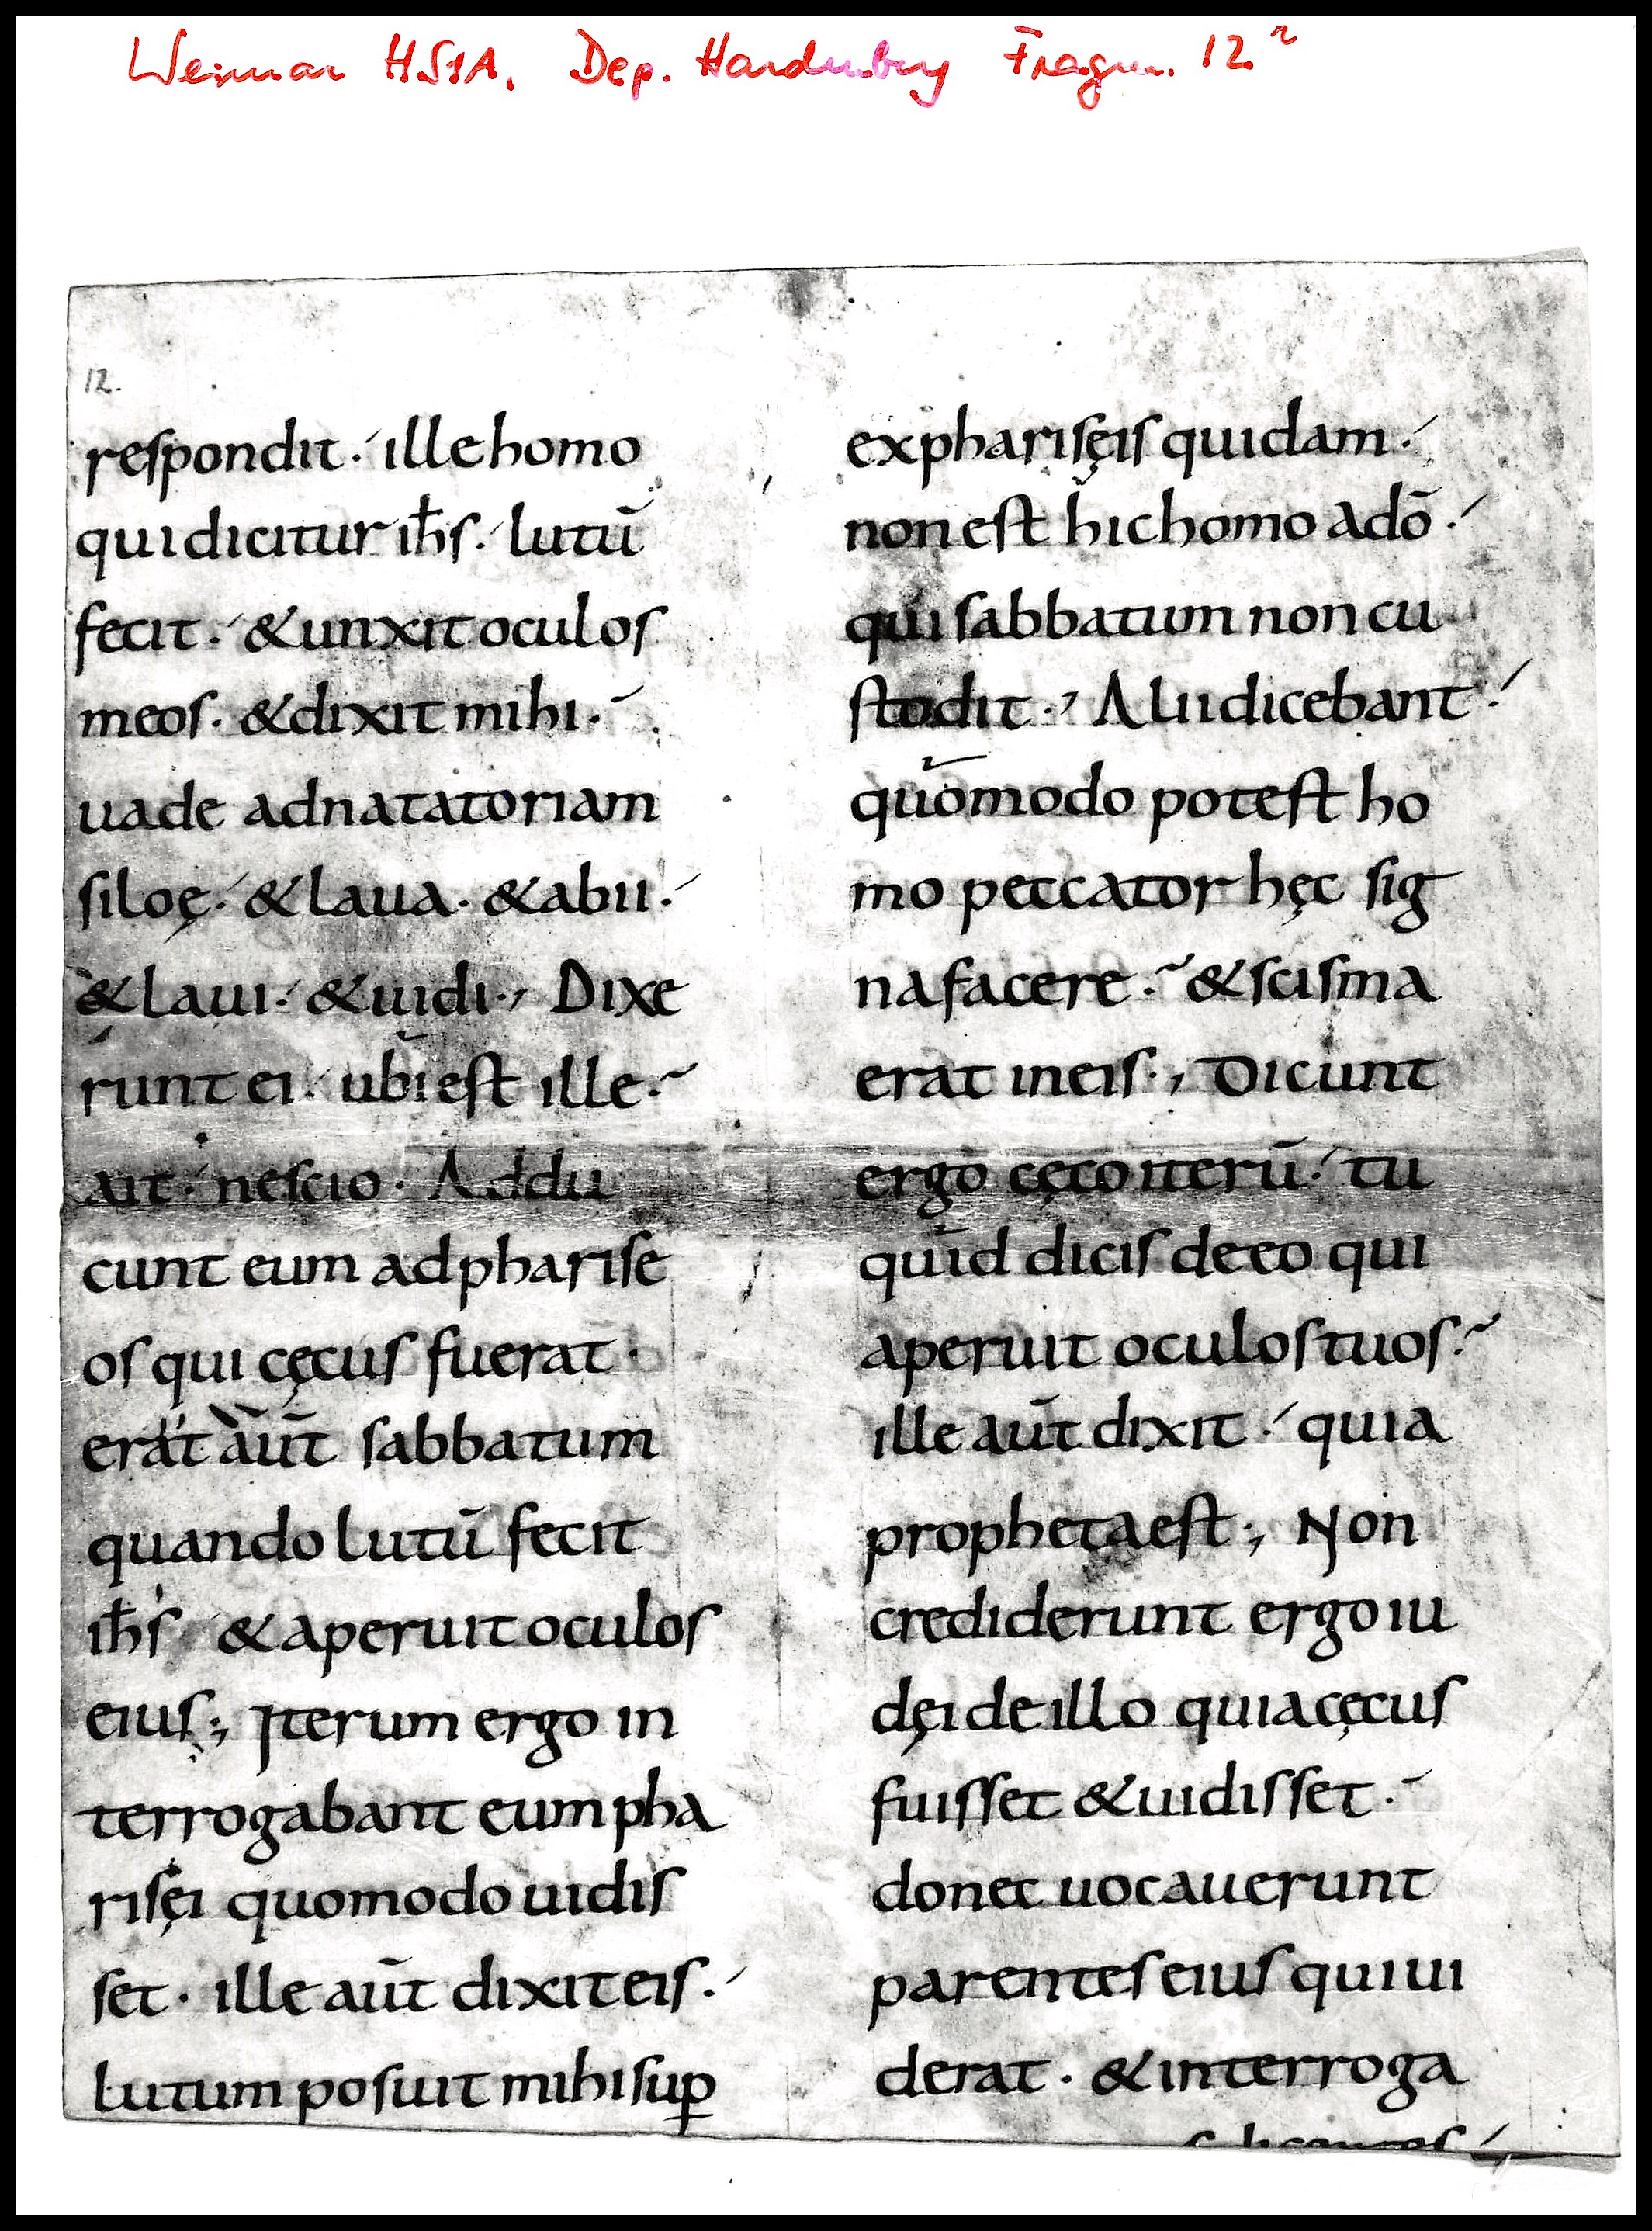 Weimar HStA. Dep. Hardenberg Fragm. 12ʳ
12.
respondit. ille homo
qui dicitur ih̅s. lutū
fecit. & unxit oculos
meos. & dixit mihi.
uade ad natatoriam
siloę. & laua. & abii.
& laui. & uidi., Dixe
runt ei. ubi est ille.
ait. nescio. Addu
cunt eum ad pharise
os qui cęcus fuerat.
erat aūt sabbatum
quando lutū fecit
ih̅s & aperuit oculos
eius., Iterum ergo in
terrogabant eum pha
risęi quomodo uidis
set. ille aūt dixit eis.
Lutum posuit mihi suꝑ
ex pharisęis quidam.
non est hic homo a dō.
qui sabbatum non cu
stodit., Alii dicebant.
quomodo potest ho
mo peccator hęc sig
na facere. & scisma
erat in eis., Dicunt
ergo cęco iterū. tu
quid dicis de eo qui
aperuit oculos tuos.
ille aūt dixit. quia
propheta est., Non
crediderunt ergo iu
dęi de illo quia cęcus
fuisset & uidisset.
donec uocauerunt
parentes eius qui ui
derat. & interroga